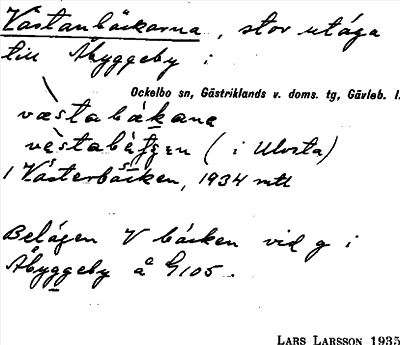 Västanbäckarna, stor utäga
till Åbyggeby i
Ockelbo sn, Gästriklands v. doms. tg, Gävleb. l.
væ̀stabækana
(i Ulvsta)
1 Västerbäcken, 1934 mtl
Belägen V bäcken vid g i
Åbyggeby å G 105.
LARS LARSSON 1935